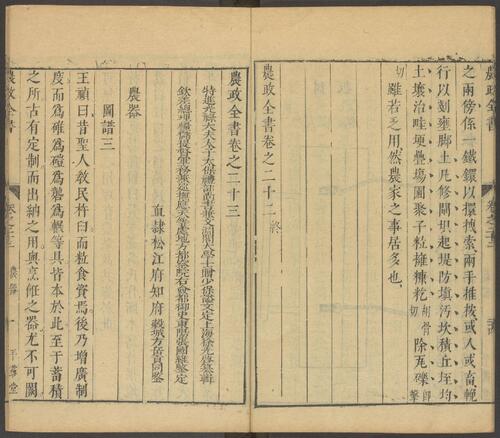 之兩傍係一鐵鐶以擐拽索兩手推按或人或畜輓
行以刻壅脚土凡修閘埧起堤防填汚坎積丘垤均
土壤治畦埂疊塲圃聚子粒擁糠籺胡骨切除瓦礫郎擊
切雖若乏用然農家之事居多也
農政全書卷之二十二終
農政全書卷之二十三
特進光祿大夫太子太保禮部尚書兼文淵閣大學士贈少保諡文定上海徐光啓纂輯
欽差總理糧儲提督軍務兼巡撫應天等處地方都察院右僉都御史東陽張國維鑒定
直隸松江府知府穀城方岳貢同鑒
農器
圖譜三
王禎曰昔聖人敎民杵臼而粒食資焉後乃增廣制
度而為碓為磑為礱為輾等具皆本於此至于蓄積
之所古有定制而出納之用與烹飪之器尤不可闕
農政全書
卷之二十三
農器
一
平露堂